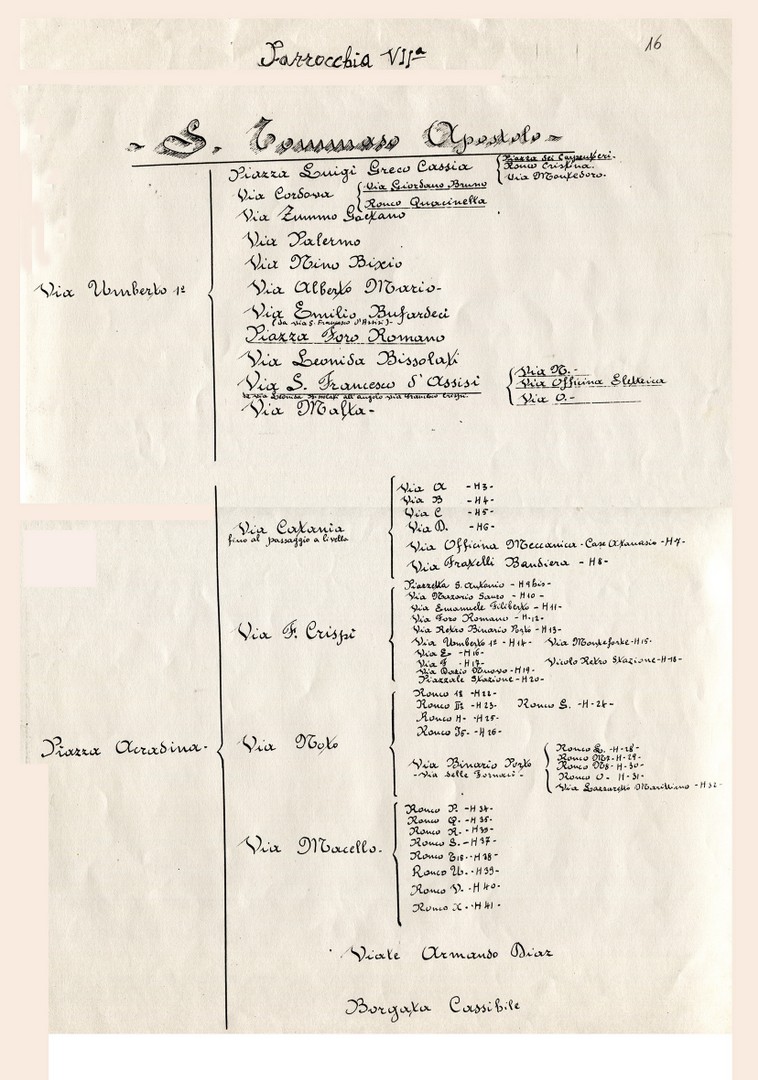 Parrocchia VIIª
16
- S. Tommaso Apostolo -
Via Umberto 1º
Piazza Luigi Greco Cassia
Piazza dei Carpentieri.
Ronco Cristina.
Via Montedoro.
Via Cordova
Via Giordano Bruno
Ronco Quacinella
Via Zummo Gaetano
Via Palermo
Via Nino Bixio
Via Alberto Mario-
Via Emilio Bufardeci
(da via S. Francesco d'Assisi)-
Piazza Foro Romano
Via Leonida Bissolati
Via S. Francesco d'Assisi
da via Leonida Bissolati all'angolo via Francesco Crespi.
Via N.-
Via Officina Elettrica
Via O.-
Via Malta-
Piazza Acradina-
Via Catania
fino al passaggio a livello
Via A -H3-
Via B -H4-
Via C -H5-
Via D. -H6-
Via Officina Meccanica-Case Atanasio -H7-
Via Fratelli Bandiera -H8-
Via F. Crispi
Piazzetta S. Antonio -H9bis-
Via Nazario Sauro -H10-
Via Emanuele Filiberto -H11-
Via Foro Romano -H.12-
Via Retro Binario Porto -H13-
Via Umberto 1º -H14- Via Monteforte-H15-
Via E- -H16-
Via F -H17- Vicolo Retro Stazione-H-18-
Via Dazio Nuovo-H19-
Piazzale Stazione-H20-
Via Noto
Ronco 1º -H22-
Ronco -H23- Ronco G. -H-24-
Ronco H- -H25-
Ronco -H26-
Via Binario Porto
-Via delle Fornaci-
Ronco L. -H-28-
Ronco -H-29-
Ronco -H-30-
Ronco O- H-31-
Via Lazzaretto Marittimo -H32-
Via Macello-
Ronco P. -H34-
Ronco Q. -H35-
Ronco R. -H36-
Ronco S. -H37-
Ronco -H38-
Ronco U. -H39-
Ronco V. -H40-
Ronco X. -H41-
Viale Armando Diaz
Borgata Cassibile